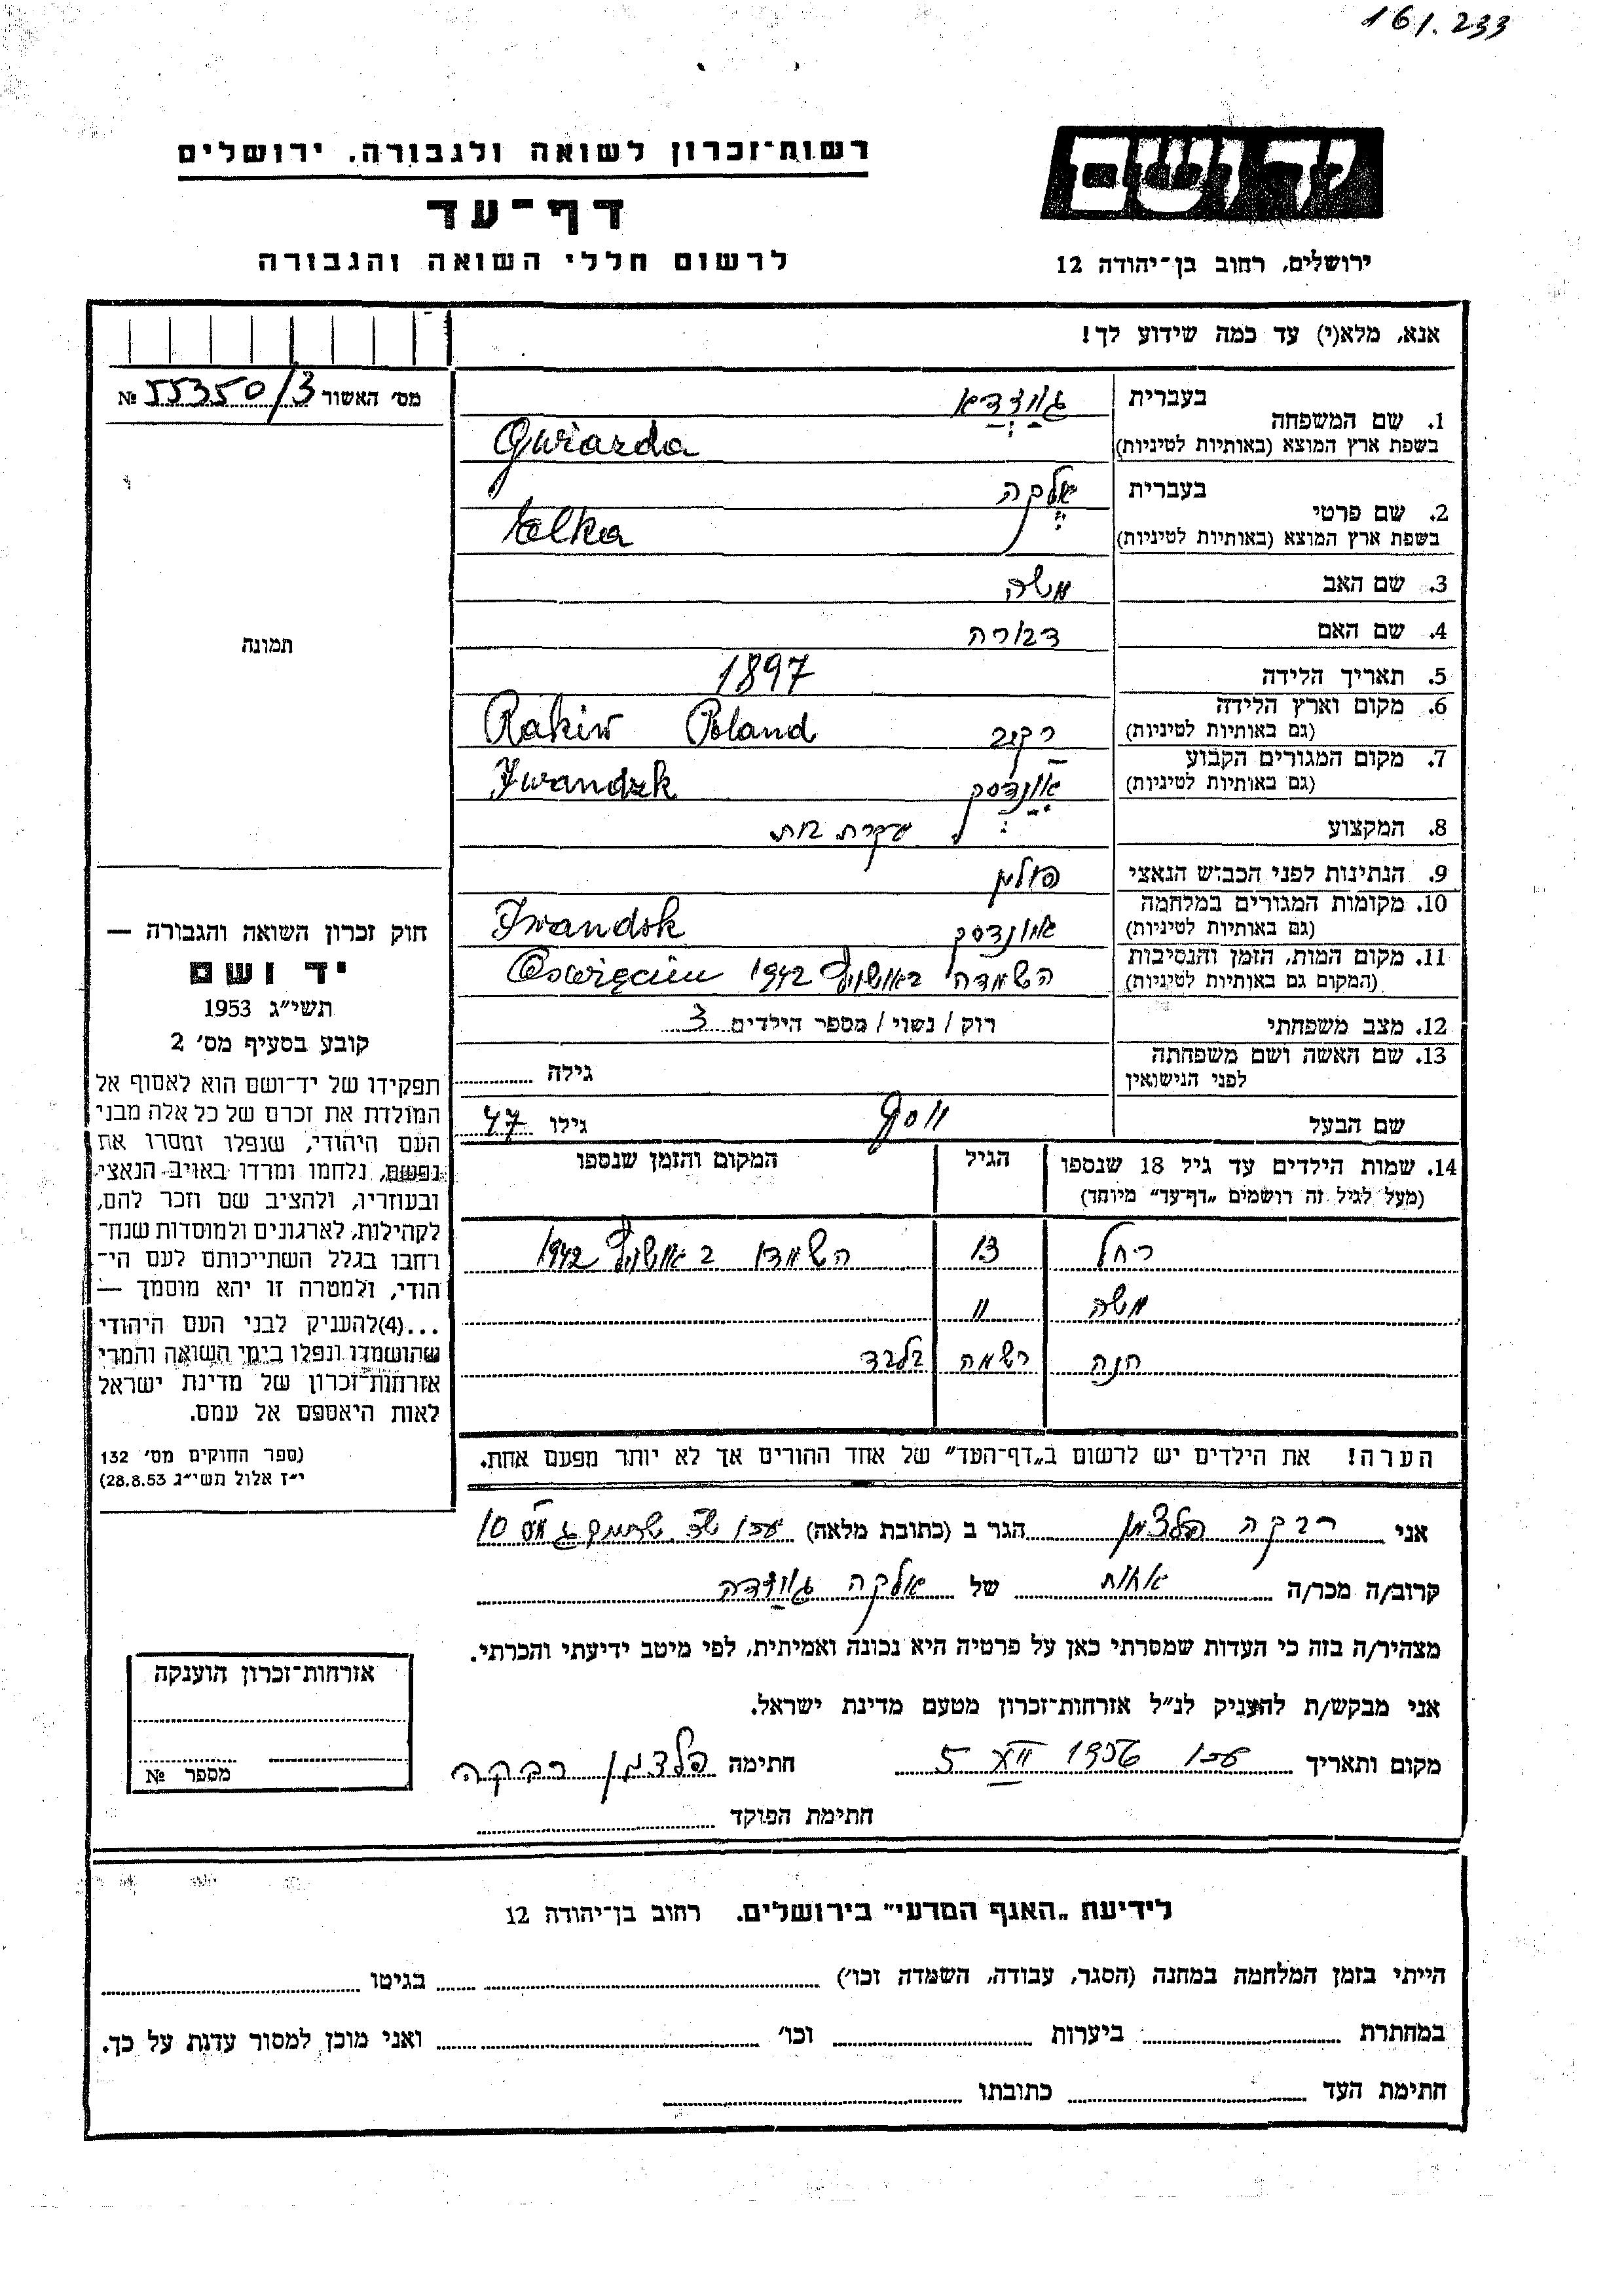 161.233
רשות־זכרון לשואה ולגבורה, ירושלים
דף־עד
לרשום חללי השואה והגבורה
יד ושם
ירושלים, רחוב בן־יהודה 12
אנא, מלא(י) עד כמה שידוע לך!
מס' האשור 55350/3 №
תמונה
1. שם המשפחה בעברית גויזדא
בשפת ארץ המוצא (באותיות לטיניות) Gwiazda
2. שם פרטי בעברית אלקה
בשפת ארץ המוצא (באותיות לטיניות) Elka
3. שם האב משה
4. שם האם דבורה
5. תאריך הלידה 1897
6. מקום וארץ הלידה
(גם באותיות לטיניות) רקוב Rakiw Poland
7. מקום המגורים הקבוע
(גם באותיות לטיניות) Iwandzk
8. המקצוע עקרת בית
9. הנתינות לפני הכבוש הנאצי פולין
10. מקומות המגורים במלחמה
(גם באותיות לטיניות) Iwandsk
11. מקום המות, הזמן והנסיבות
(המקום גם באותיות לטיניות) השמדה באושויץ 1942 Oswięcim
12. מצב משפחתי רוק / נשוי / מספר הילדים 3
13. שם האשה ושם משפחתה
לפני הנישואין גילה
שם הבעל יוסף גילו 47
14. שמות הילדים עד גיל 18 שנספו הגיל המקום והזמן שנספו
(מעל לגיל זה רושמים „דף־עד" מיוחד)
רחל 13 השמדו באושויץ 1942
משה 11
חנה רשמה בלבד
הערה! את הילדים יש לרשום ב„דף־העד" של אחד ההורים אך לא יותר מפעם אחת.
חוק זכרון השואה והגבורה —
יד ושם
תשי"ג 1953
קובע בסעיף מס' 2
תפקידו של יד־ושם הוא לאסוף אל
המולדת את זכרם של כל אלה מבני
העם היהודי, שנפלו ומסרו את
נפשם, נלחמו ומרדו באויב הנאצי
ובעוזריו, ולהציב שם וזכר להם,
לקהילות, לארגונים ולמוסדות שנח־
רחבו בגלל השתייכותם לעם הי־
הודי, ולמטרה זו יהא מוסמך —
...(4)להעניק לבני העם היהודי
שהושמדו ונפלו בימי השואה והמרי
אזרחות־זכרון של מדינת ישראל
לאות היאספם אל עמם.
(ספר החוקים מס' 132
י"ז אלול תשי"ג 28.8.53)
אני רבקה פלדמן הגר ב (כתובת מלאה) עכו 10
קרוב/ה מכר/ה אחות של אלקה גויזדה
מצהיר/ה בזה כי העדות שמסרתי כאן על פרטיה היא נכונה ואמיתית, לפי מיטב ידיעתי והכרתי.
אני מבקש/ת להעניק לנ"ל אזרחות־זכרון מטעם מדינת ישראל.
מקום ותאריך עכו 1956 XII 5 חתימה פלדמן רבקה
חתימת הפוקד
אזרחות־זכרון הוענקה
מספר №
לידיעת „האגף המדעי" בירושלים. רחוב בן־יהודה 12
הייתי בזמן המלחמה במחנה (הסגר, עבודה, השמדה וכו') בגיטו
במחתרת ביערות וכו' ואני מוכן למסור עדות על כך.
חתימת העד כתובתו